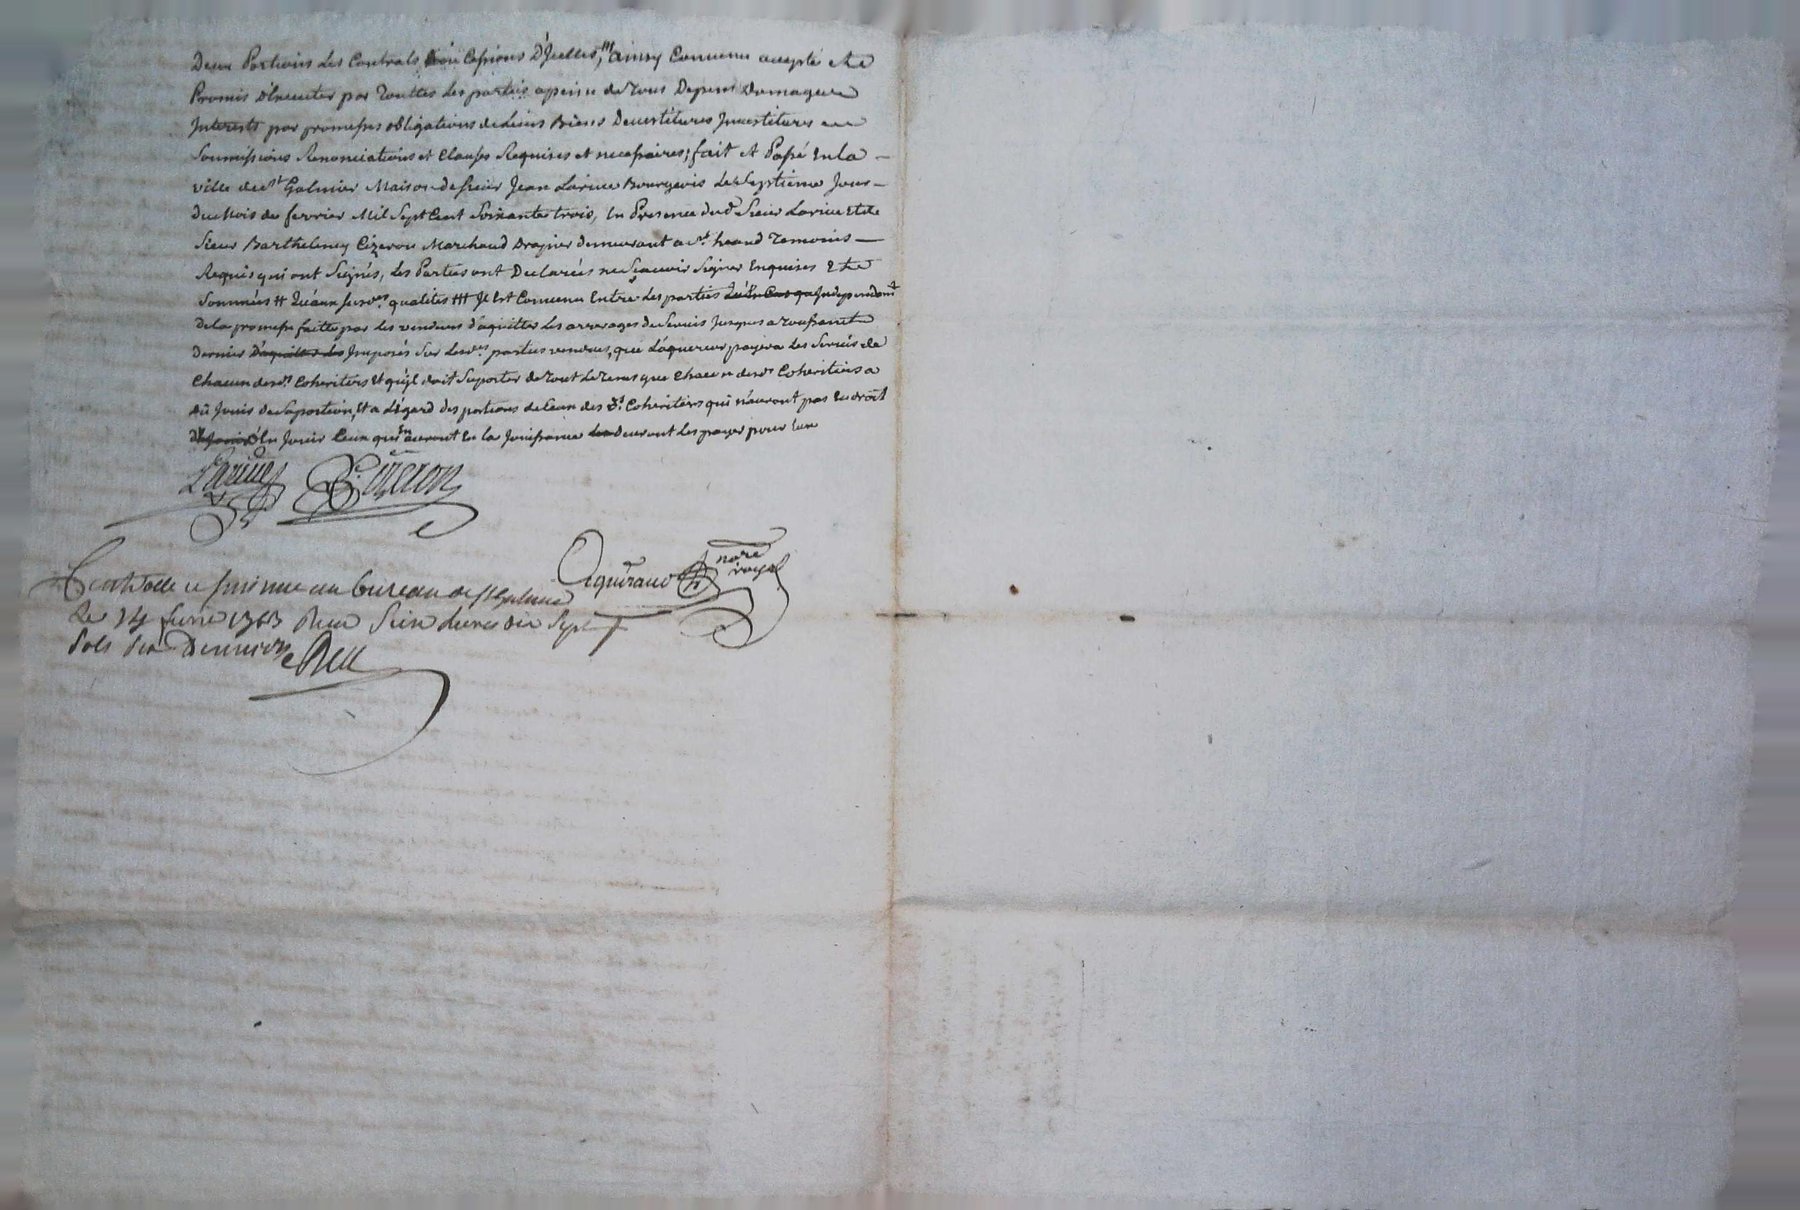 Deux Portions des Contrats Cessions D'Jcelles, ainsy Convenu accepté et
Promis D'Executer par Touttes les parties a peine de Tous Depens Domages
Jnterests par promesses obligations de Leurs Biens Devestitures Jnvestitures
Soumissions Renonciations et Clauses Requises et necessaires; fait et Passé En la
ville de st Galmier Maison de sieur Jean Larive Bourgeois Le septieme Jour
du Mois de fevrier Mil Sept Cent Soixante trois, En Presence dud. Sieur Larive et de
Sieur Barthelemy Cizeron Marchand Drapier demeurant a st heand Temoins
Requis qui ont Signés, Les Parties ont Declarées ne Scavoir Signer Enquises Et
Sommées # Qu'aux susd.es qualites ### Jl Est Convenu Entre Les parties qu'Independam.t
De la promesse faitte par les vendeurs d'aquitter les arrerages de servis Jusques a Toussaint
dernier Jmposés Sur Lesd.es parties vendues, que L'aquereur payera les Servis de
Chacun desd.s Coheritiers et qu'il doit Suporter de Tout Le Tems que Chacun desd.s Coheritiers a
dû Jouir de Sa portion, Et a L'égard des portions de Ceux des d.s Coheritiers qui n'auront pas Eu droit
D'En Jouir Ceux qui En auront Eu la Jouissance devront Les payer pour Eux
Larive B. Cizeron
Aguiraud nore royal
Controllé au bureau de st Galmier
Le 14 fevrier 1763 Reçu livres dix Sept
sols six Deniers